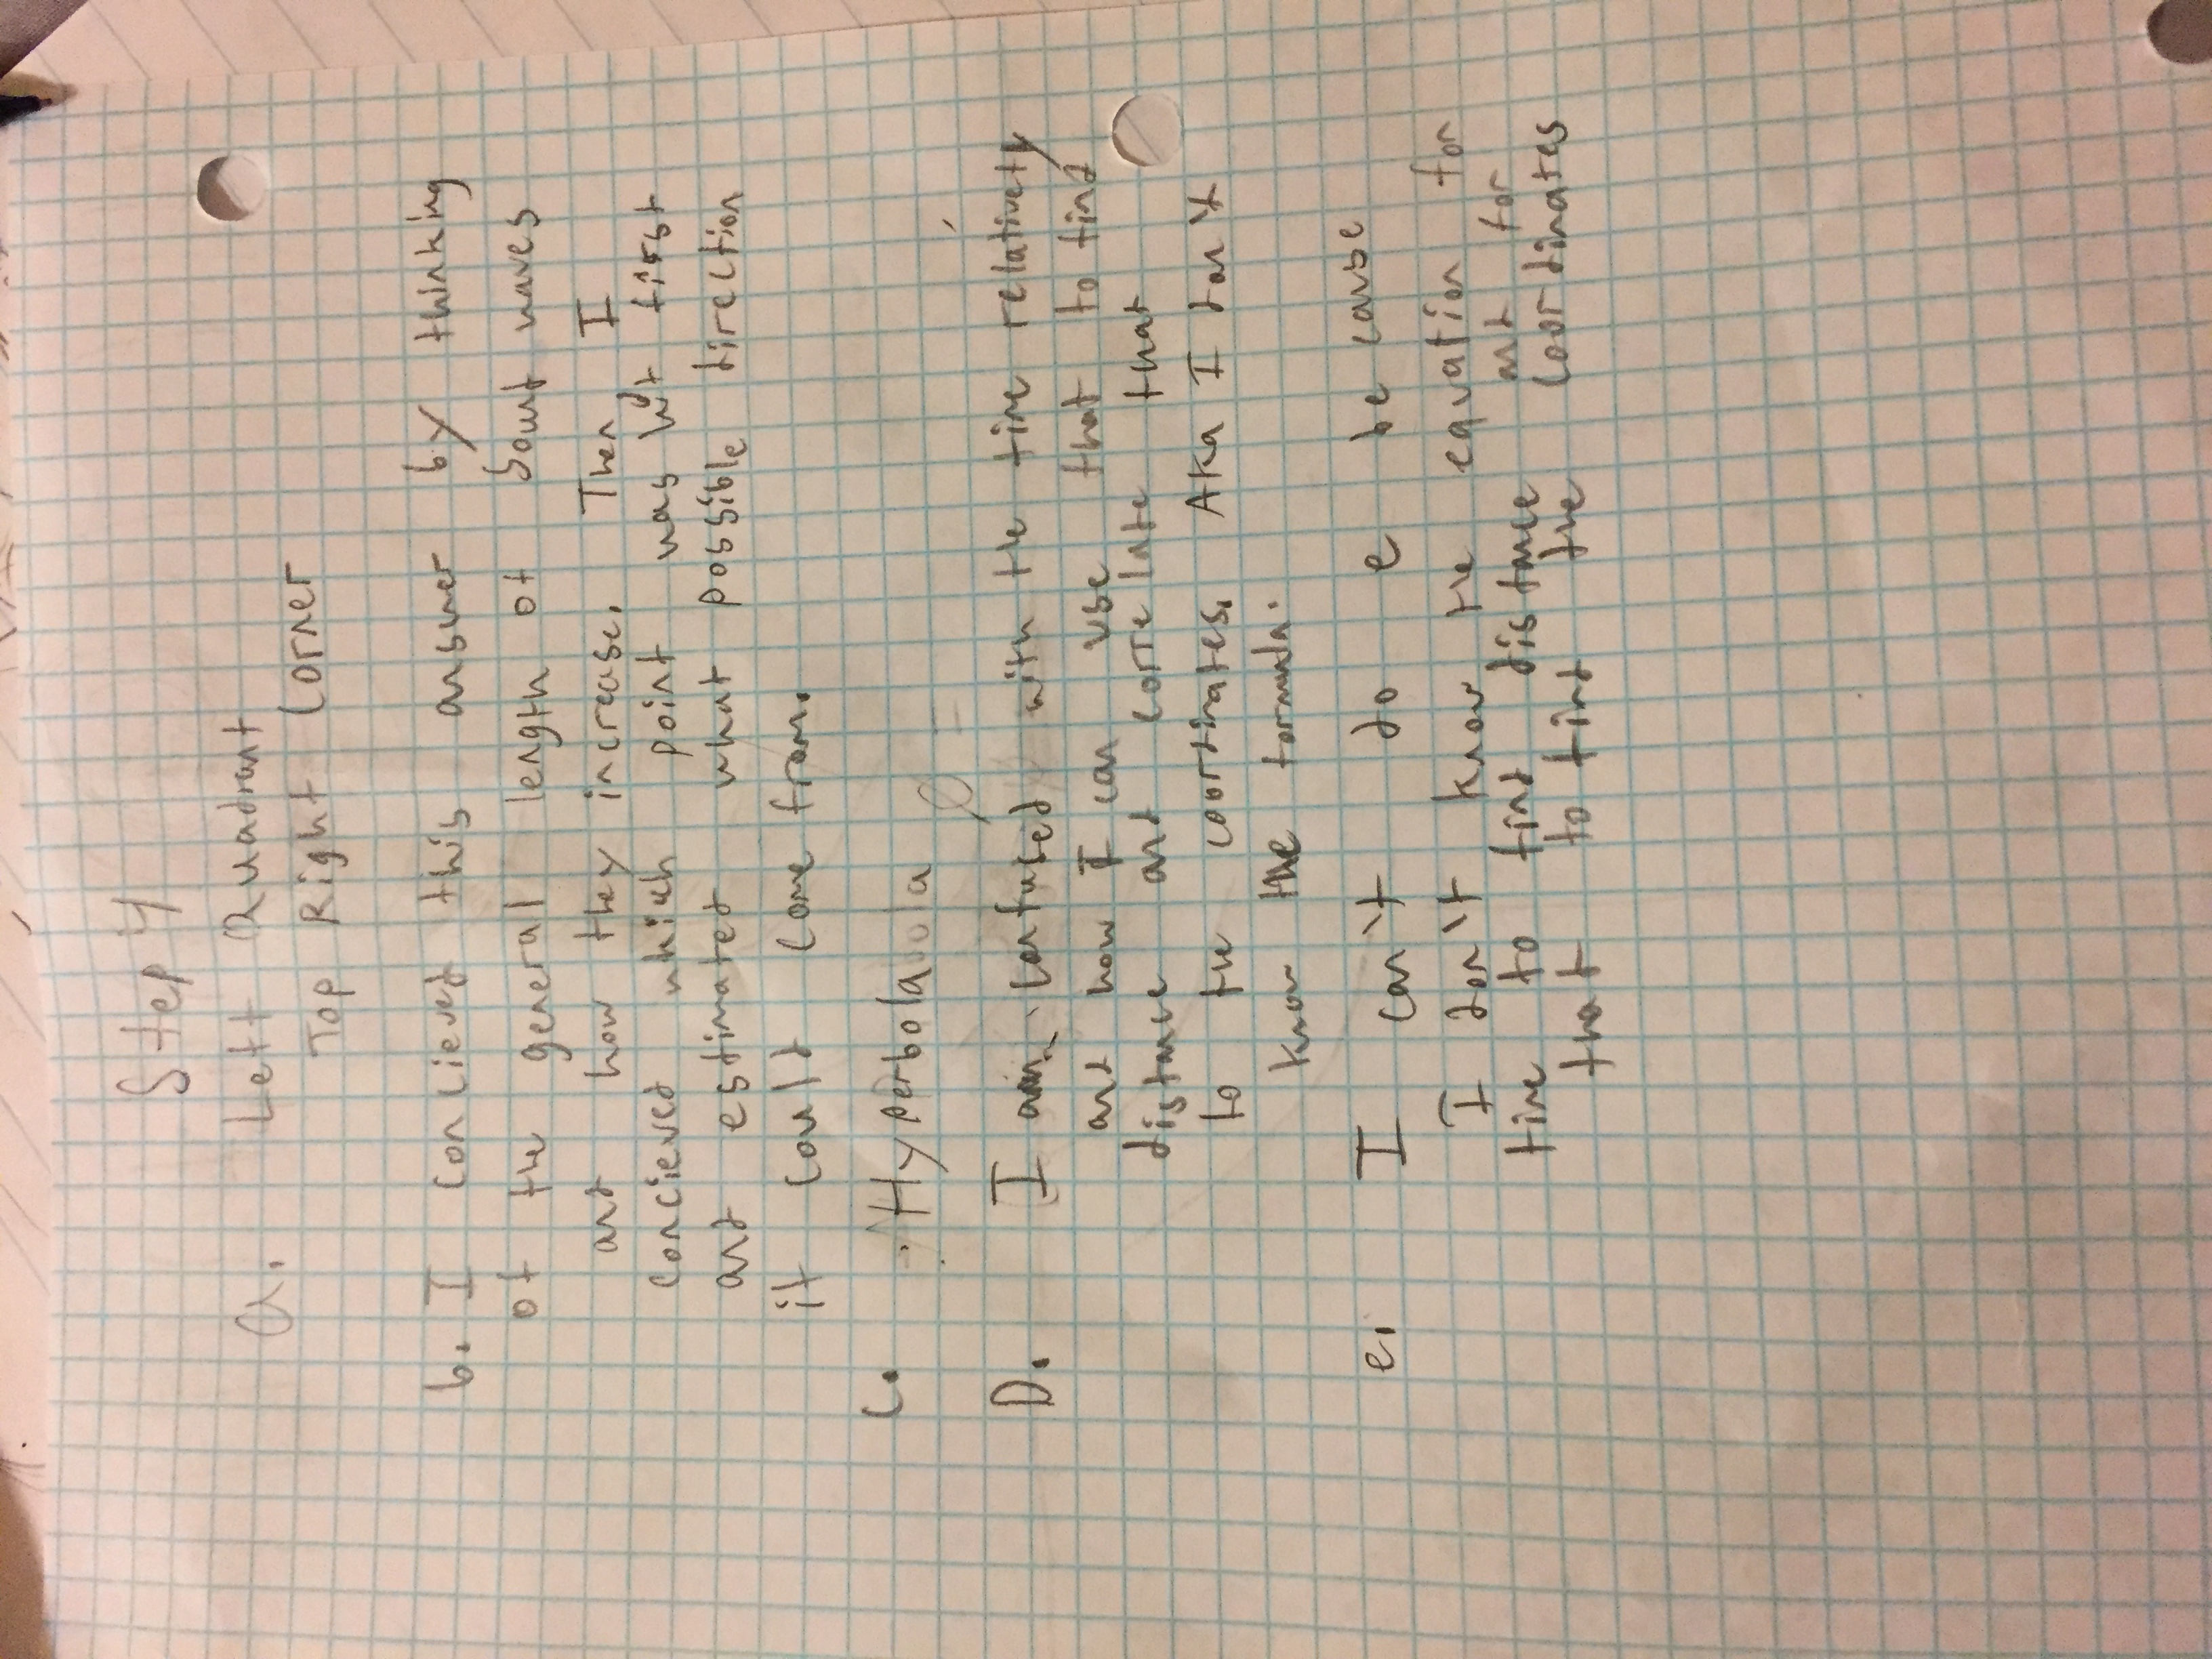 Step 4
a. Left Quadrant
Top Right Corner
b. I concieved this answer by thinking
of the general length of sound waves
and how they increase. Then, I
concieved which point was hit first
and estimated what possible direction
it could come from.
C. Hyperbola
D. I am confused with the time relatively
and how I can use that to find
distance and correlate that
to the coordinates. Aka I don't
know the formula.
e. I can't do e because
I don't know the equation for
time to find distance and for
that to find the coordinates